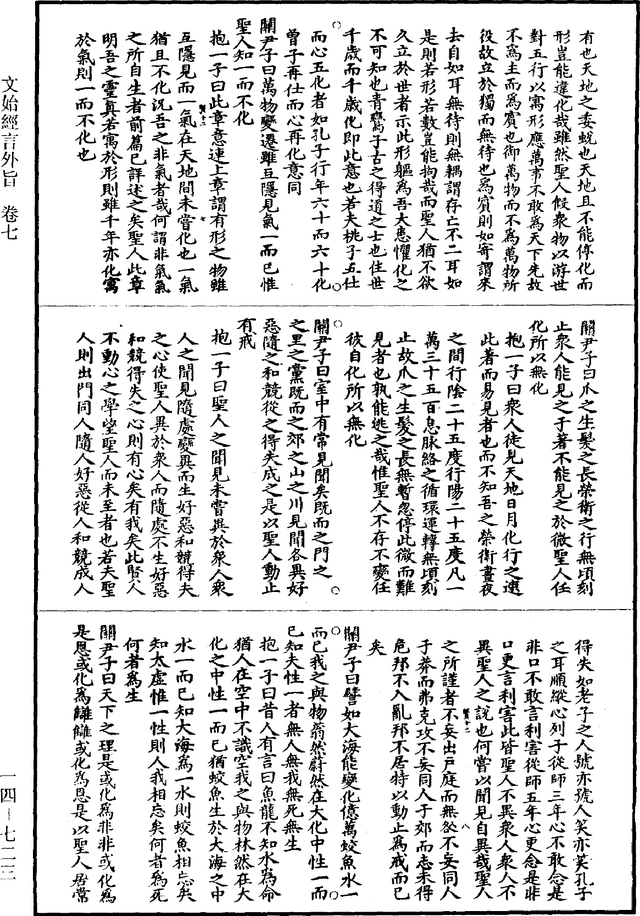 文始經言外旨 卷七
一四—七二二
有也天地之委蛻也天地且不能停化而
形豈能違化哉雖然聖人假衆物以游世
對五行以寓形應萬事不敢爲天下先故
不爲主而爲賓也御萬物而不爲萬物所
役故立於獨而無待也爲賓則如寄謂來
去自如耳無待則無耦謂存亡不二耳如
是則若形若數豈能拘哉而聖人猶不欲
久立於世者示此形軀爲吾大患懼化之
不可知也青鸞子古之得道之士也住世
千歲而千歲化即此意也若夫桃子五仕
而心五化者如孔子行年六十而六十化
曾子再仕而心再化意同
關尹子曰萬物變遷雖互隱見氣一而已惟
聖人知一而不化
抱一子曰此章意連上章謂有形之物雖
互隱見而一氣在天地間未嘗化也一氣
猶且不化況吾之非氣者哉何謂非氣氣
之所自生者前篇已詳述之矣聖人此章
明吾之靈真若寓於形則雖千年亦化寓
於氣則一而不化也
關尹子曰爪之生髮之長榮衛之行無頃刻
止衆人能見之于著不能見之於微聖人任
化所以無化
抱一子曰衆人徒見天地日月化行之遷
此著而易見者也而不知吾之榮衛晝夜
之間行陰二十五度行陽二十五度凡一
萬三千五百息脉絡之循環運轉無頃刻
止故爪之生髮之長無暫忽停此微而難
見者也孰能逃之哉惟聖人不存不變任
彼自化所以無化
關尹子曰室中有常見聞矣既而之門之
之里之黨既而之郊之山之川見聞各異好
惡隨之和競從之得失成之是以聖人動止
有戒
抱一子曰聖人之聞見未嘗異於衆人衆
人之聞見隨處變異而生好惡和競得失
之心使聖人異於衆人而隨處不生好惡
和競得失之心則有心矣有我矣此賢人
不動心之學望聖人而未至者也若夫聖
人則出門同人隨人好惡從人和競成人
得失如老子之人號亦號人笑亦笑孔子
之耳順縱心列子從師三年心不敢念是
非口不敢言利害從師五年心更念是非
口更言利害此皆聖人不異衆人衆人不
異聖人之說也何嘗以聞見自異哉聖人
之所謹者不妄出戶庭而無咎不妄同人
于莽而弗克攻不妄同人于郊而志未得
危邦不入亂邦不居特以動止爲戒而已
矣
關尹子曰譬如大海能變化億萬蛟魚水一
而已我之與物蓊然蔚然在大化中性一而
已知夫性一者無人無我無死無生
抱一子曰昔人有言曰魚龍不知水爲命
猶人在空中不識空我之與物林然在大
化之中性一而已猶蛟魚生於大海之中
水一而已知大海爲一水則蛟魚相忘矣
知太虛惟一性則人我相忘矣何者爲死
何者爲生
關尹子曰天下之理是或化爲非非或化爲
是恩或化爲讎讎或化爲恩是以聖人居常